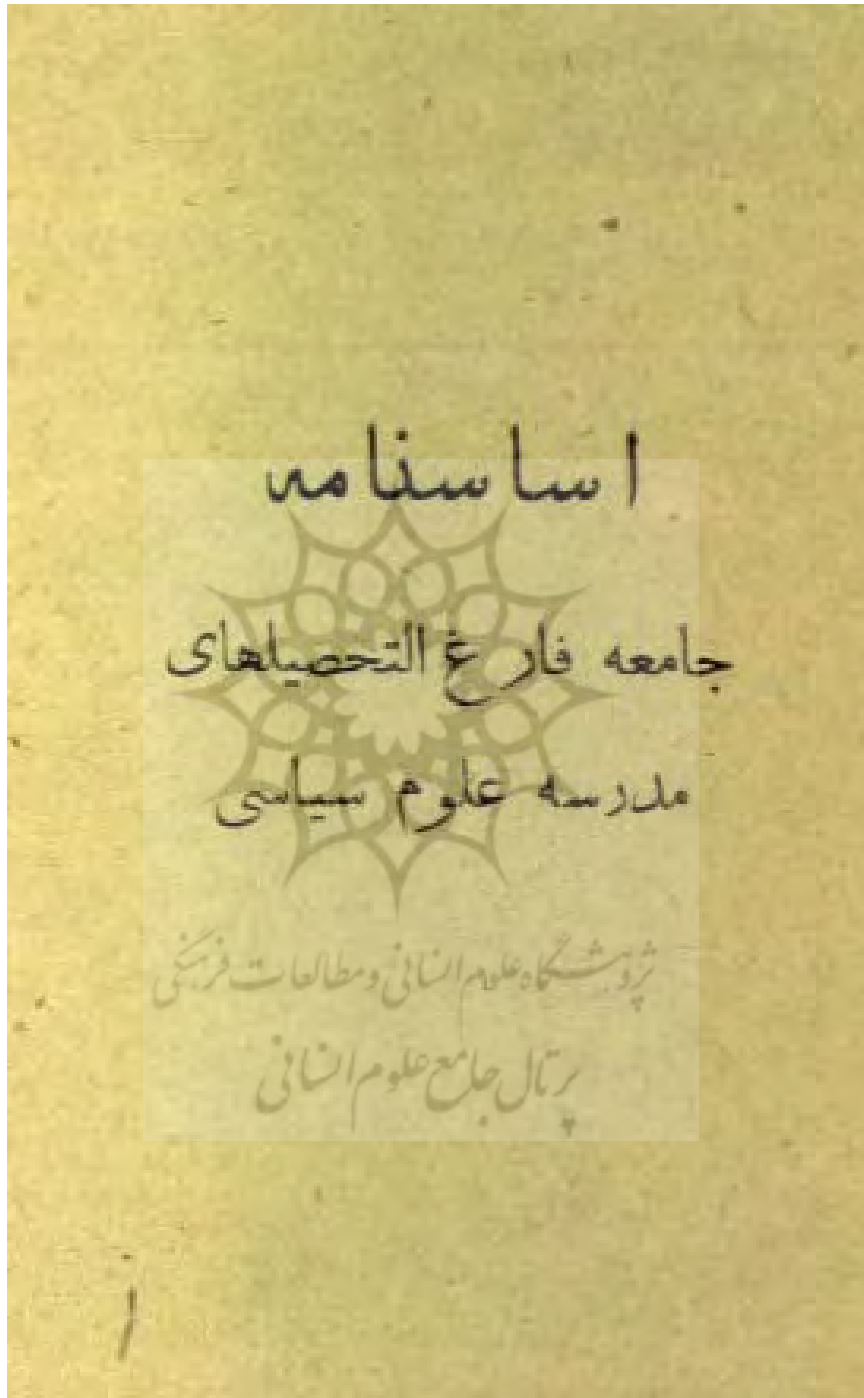 اساسنامه
جامعه فارغ التحصیلهای
مدرسه علوم سیاسی
پژوهشگاه علوم انسانی و مطالعات فرهنگی
پرتال جامع علوم انسانی
۱